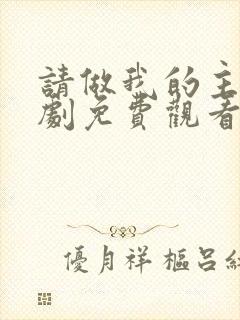 請做我的主
劇免費觀看
優月祥樞呂紅